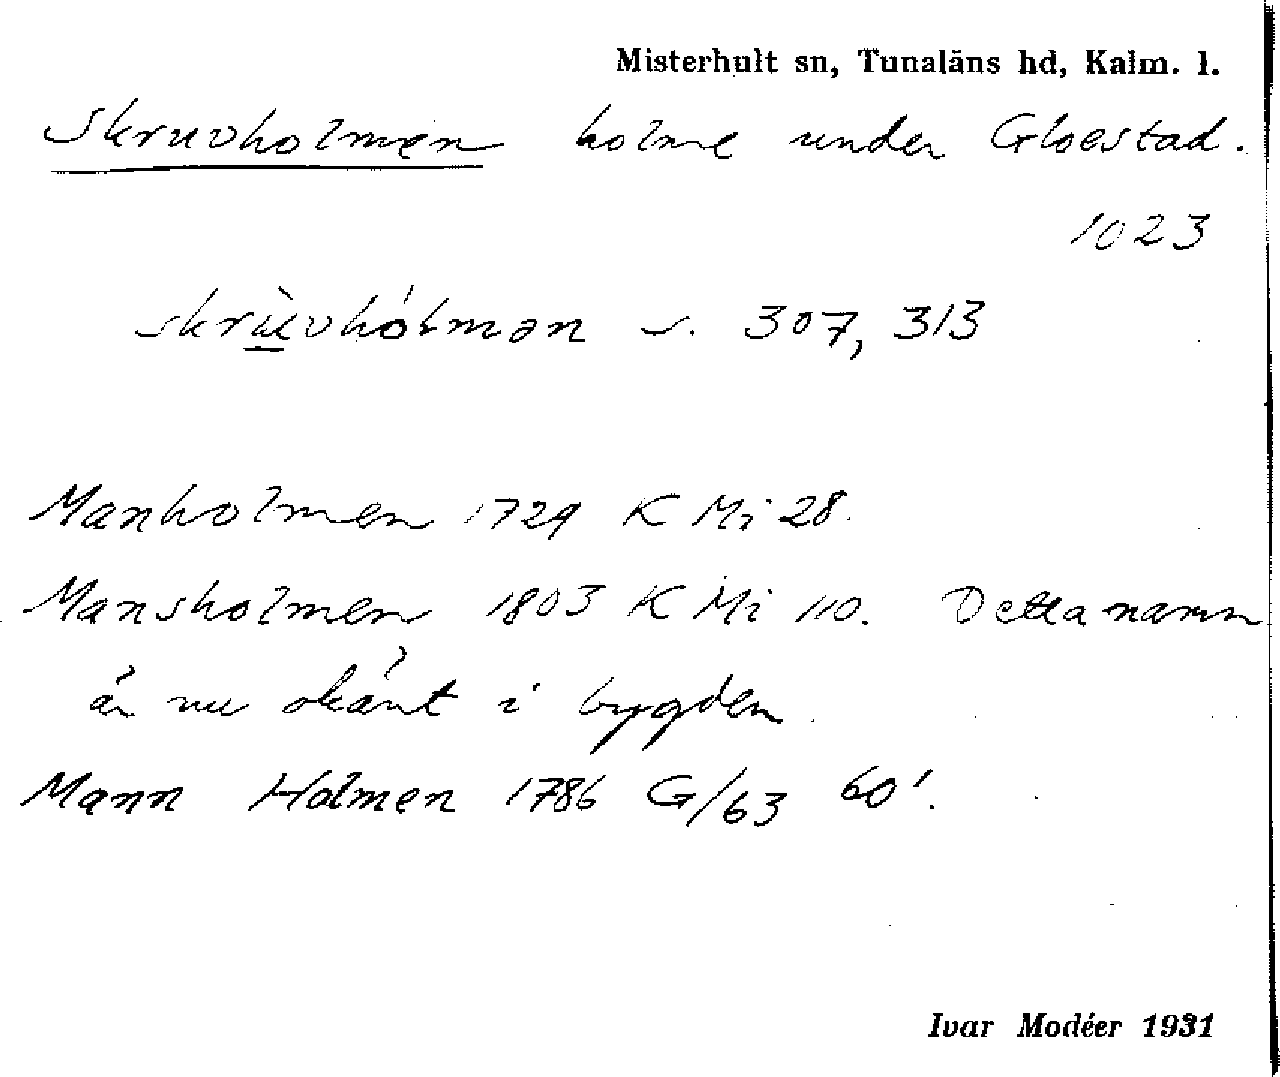 Misterhult sn, Tunaläns hd, Kalm. l.
Skruvholmen holme under Gloestad.
1023
skrùvhólmən s. 307, 313
Manholmen 1729 K Mi 28.
Mansholmen 1803 K Mi 110. Detta namn
är nu okänt i bygden.
Mann Holmen 1786 G/63 60'.
Ivar Modéer 1931